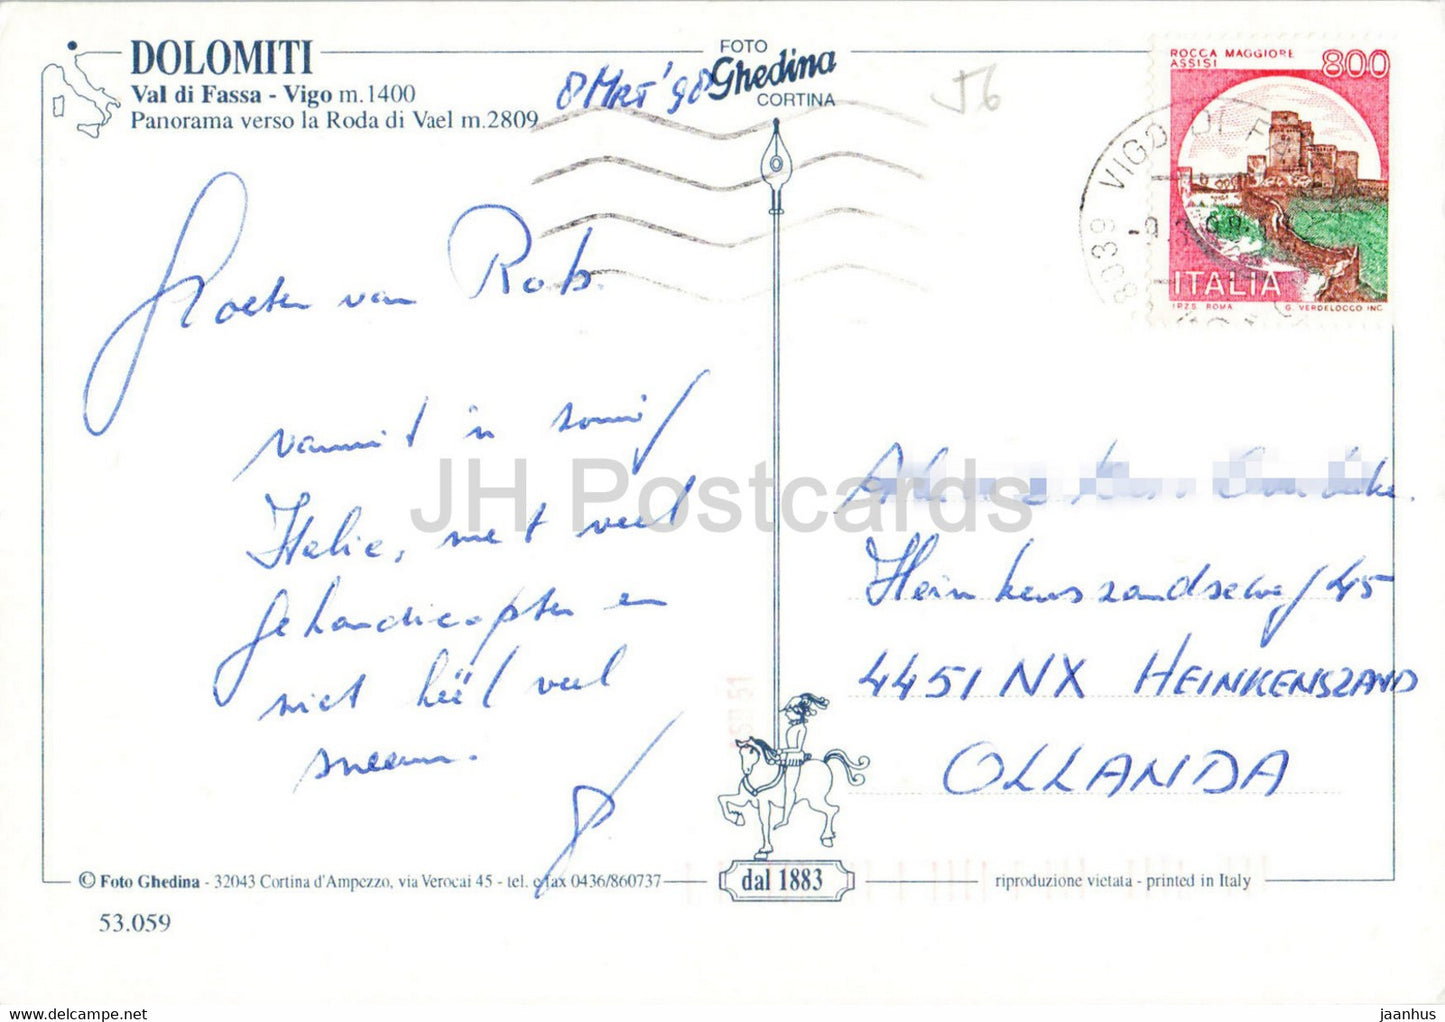 DOLOMITI
Val di Fassa - Vigo m.1400
Panorama verso la Roda di Vael m.2809
8 Mrt '98
FOTO
Ghedina
CORTINA
56
ROCCA MAGGIORE
ASSISI
800
ITALIA
I.P.Z.S. ROMA G. VERDELOCCO INC.
38039 VIGO DI
Groeten van Rob.
vanuit 'n sonnig
Italie, met veel
gehandicapten en
niet héél veel
sneeuw.
JH Postcards
Heinkenszandseweg 45
4451 NX HEINKENSZAND
OLLANDA
© Foto Ghedina - 32043 Cortina d'Ampezzo, via Verocai 45 - tel. e fax 0436/860737
dal 1883
riproduzione vietata - printed in Italy
53.059
https://www.ebay.com/str/jhpostcards
jaanhus